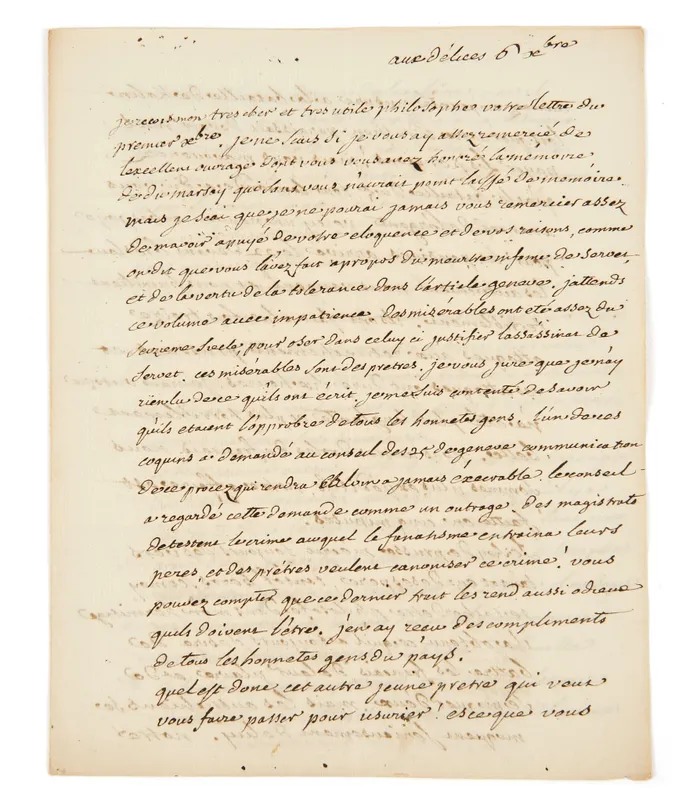 aux délices 6 xbre
je reçois mon tres cher et tres utile philosophe votre lettre du
premier xbre. je ne scais si je vous ay assez remercié de
l'excellent ouvrage dont vous vous avez honoré la mémoire
de du marsay qui sans vous n'aurait point laissé de mémoire.
mais je scai que je ne pourai jamais vous remercier assez
de m'avoir apuyé de votre eloquence et de vos raisons, comme
on dit que vous l'avez fait a propos du meurtre infame de servet
et de la vertu de la tolerance dans l'article geneve. j'attends
ce volume avec impatience. des misérables ont été assez du
seizieme siecle, pour oser dans celuy ci justifier l'assassinat de
servet. ces misérables sont des pretres. je vous jure que je n'ay
rien lu de ce qu'ils ont écrit. je me suis contenté de savoir
qu'ils etaient l'opprobre de tous les honnetes gens. l'un de ces
coquins a demandé au conseil des 25 de geneve communication
de ce procez qui rendra calvin a jamais éxecrable. le conseil
a regardé cette demande comme un outrage. des magistrats
detestent le crime auquel le fanatisme entraina leurs
peres, et des prétres veulent canoniser ce crime! vous
pouvez compter que ce dernier trait les rend aussi odieux
quils doivent l'être. j'en ay recu des compliments
de tous les honnetes gens du pays.
quel est donc cet autre jeune pretre qui veut
vous faire passer pour usurier! esce que vous